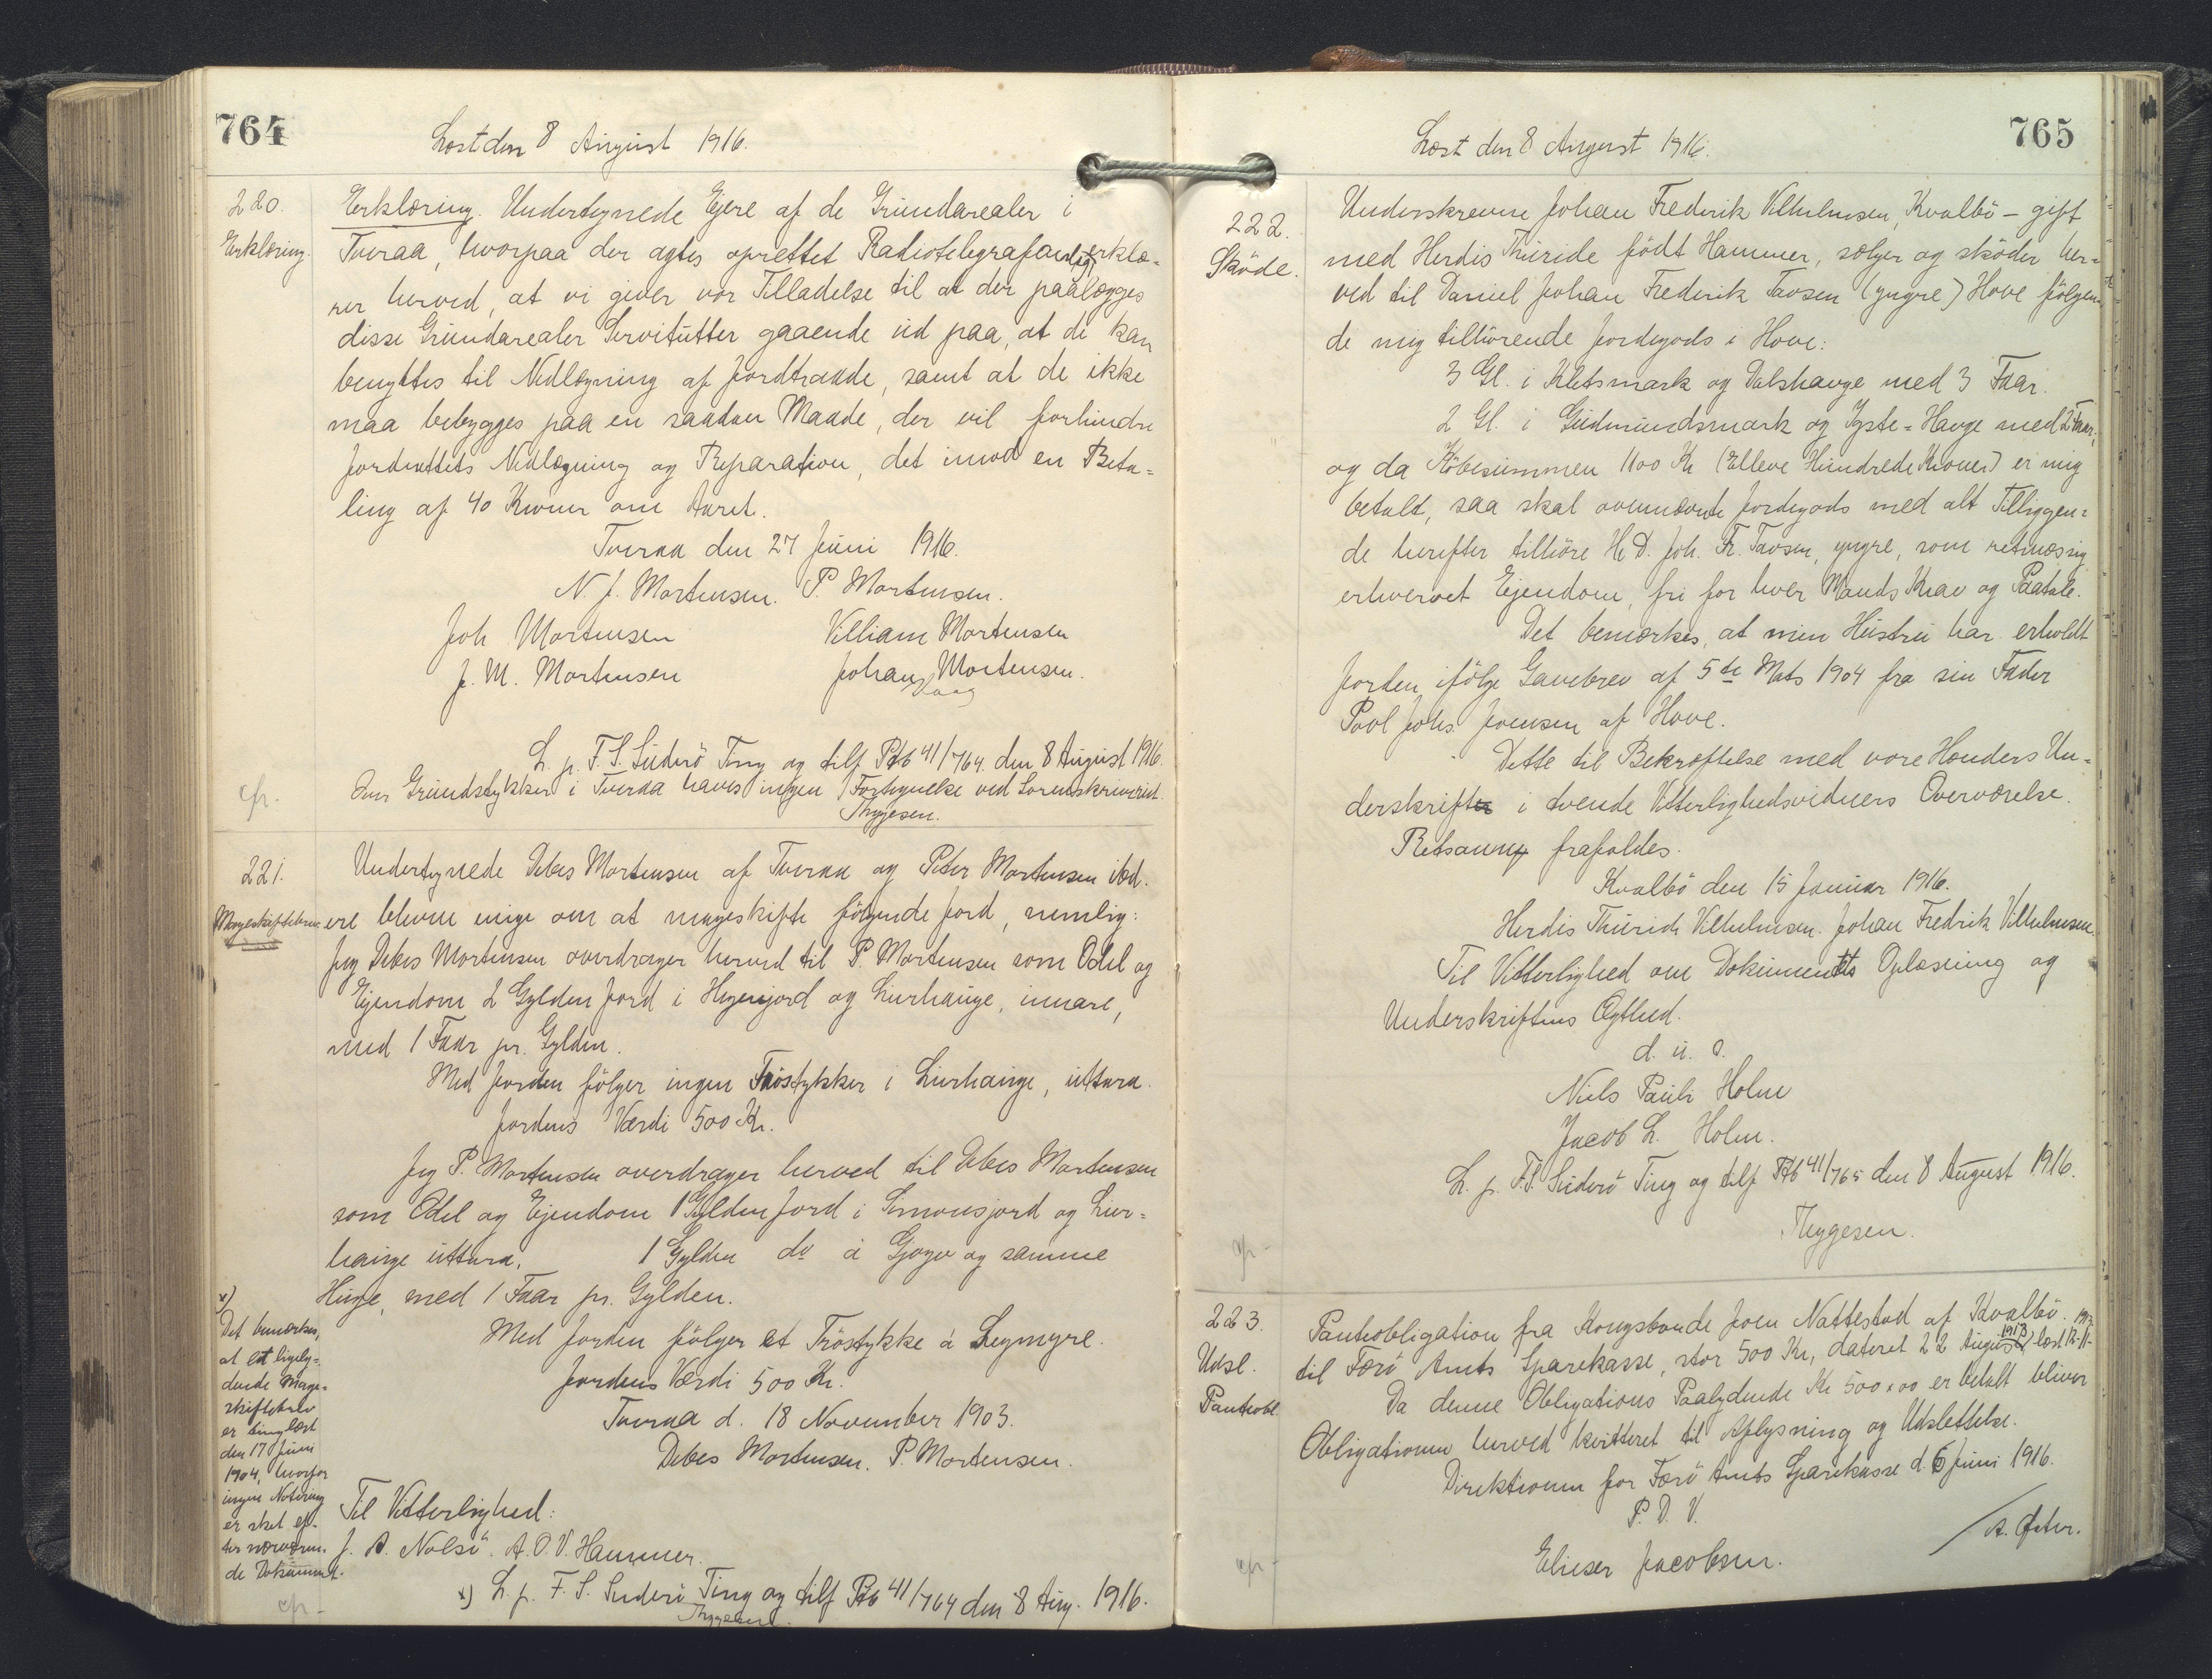 764
Læst den 8 August 1916.
220.
Erklæring.
Erklæring. Undertegnede Ejere af de Grundarealer i
Tveraa, hvorpaa der agtes oprettet Radiotelegrafanlæg, erklæ-
rer herved, at vi giver vor Tilladelse til at der paalægges
disse Grundarealer Servitutter gaaende ud paa, at de kan
benyttes til Nedlægning af Jordtraade, samt at de ikke
maa bebygges paa en saadan Maade, der vil forhindre
Jordnettets Nedlægning og Reparation, det imod en Beta-
ling af 40 Kroner om Aaret.
Tveraa den 27 Juni 1916.
N. J. Mortensen. P. Mortensen.
Joh Mortensen Villiam Mortensen
J. M. Mortensen Johan Mortensen.
Vaag
L. p. F. S. Suderö Ting og tilf Ptb 41/764 den 8 August 1916.
Over Grundstykker i Tveraa haves ingen Fortegnelse ved Sorenskriveriet.
Thygesen.
cfr.
221.
Mageskiftebrev.
Undertegnede Debes Mortensen af Tveraa og Peter Mortensen ibd.
ere blevne enige om at mageskifte følgende Jord, nemlig:
Jeg Debes Mortensen overdrager herved til P. Mortensen som Odel og
Ejendom 2 Gylden Jord i Hegnijord og Lirhauge, innare,
med 1 Faar pr. Gylden.
Med Jorden følger ingen Tröstykker i Lirhauge, uttara.
Jordens Værdi 500 Kr.
Jeg P. Mortensen overdrager herved til Debes Mortensen
som Odel og Ejendom 1 Gylden Jord i Simonsjord og Lir-
hauge uttara, 1 Gylden do á Gjogv og samme
Huge, med 1 Faar pr. Gylden.
Med Jorden følger et Tröstykke á Legmyre.
Jordens Værdi 500 Kr.
Tveraa d. 18 November 1903.
Debes Mortensen. P. Mortensen.
Til Vitterlighed:
J. A. Nolsö. A. O. V. Hammer.
x) L. p. F. S. Suderö Ting og tilf Ptb 41/764 den 8 Aug. 1916.
Thygesen.
x)
Det bemærkes,
at et ligely-
dende Mage-
skiftebrev
er tinglæst
den 17 Juni
1904, hvorfor
ingen Notering
er sket ef-
ter nærværen-
de Dokument.
cfr-
765
Læst den 8 August 1916.
222.
Sköde.
Underskrevne Johan Frederik Vilhelmsen, Kvalbö - gift
med Herdis Thuride födt Hammer, sælger og sköder her-
ved til Daniel Johan Frederik Tavsen (yngre) Hove fölgen-
de mig tilhörende Jordegods i Hove:
3 Gl. i Kletsmark og Dalshauge med 3 Faar.
2 Gl. i Gudmundsmark og Yste-Hauge med 2 Faar;
og da Köbesummen 1100 Kr (Elleve Hundrede Kroner) er mig
betalt, saa skal ovennævnte Jordegods med alt Tilliggen-
de herefter tilhöre Hr D. Joh. Fr. Tavsen, yngre, som retmæssig
erhvervet Ejendom, fri for hver Mands Krav og Paatale.
Det bemærkes, at min Hustru har erholdt
Jorden ifölge Gavebrev af 5te Mats 1904 fra sin Fader
Povl Johs. Joensen af Hove.
Dette til Bekræftelse med vore Hænders Un-
derskrifter i tvende Vitterlighedsvidners Overværelse.
Retsanmg frafaldes.
Kvalbö den 15 Januar 1916.
Herdis Thurid Vilhelmsen. Johan Fredrik Vilhelmsen.
Til Vitterlighed om Dokumentets Oplæsning og
Underskriftens Ægthed.
d. u. s.
Niels Pauli Holm
Jacob L. Holm.
L. p. F. S. Suderö Ting og tilf Ptb 41/765 den 8 August 1916.
Thygesen.
cfr-
223.
Udsl.
Panteobl.
Panteobligation fra Kongsbonde Joen Nattestad af Kvalbö
til Færö Amts Sparekasse, stor 500 Kr, dateret 22 August 1913, læst 12-11-
Da denne Obligations Paalydende Kr 500,00 er betalt bliver
Obligationen herved kvitteret til Aflysning og Udslettelse.
Direktionen for Færö Amts Sparekasse d. 6 Juni 1916.
P. D. V.
Elieser Jacobsen. / A. Öster.
cfr-